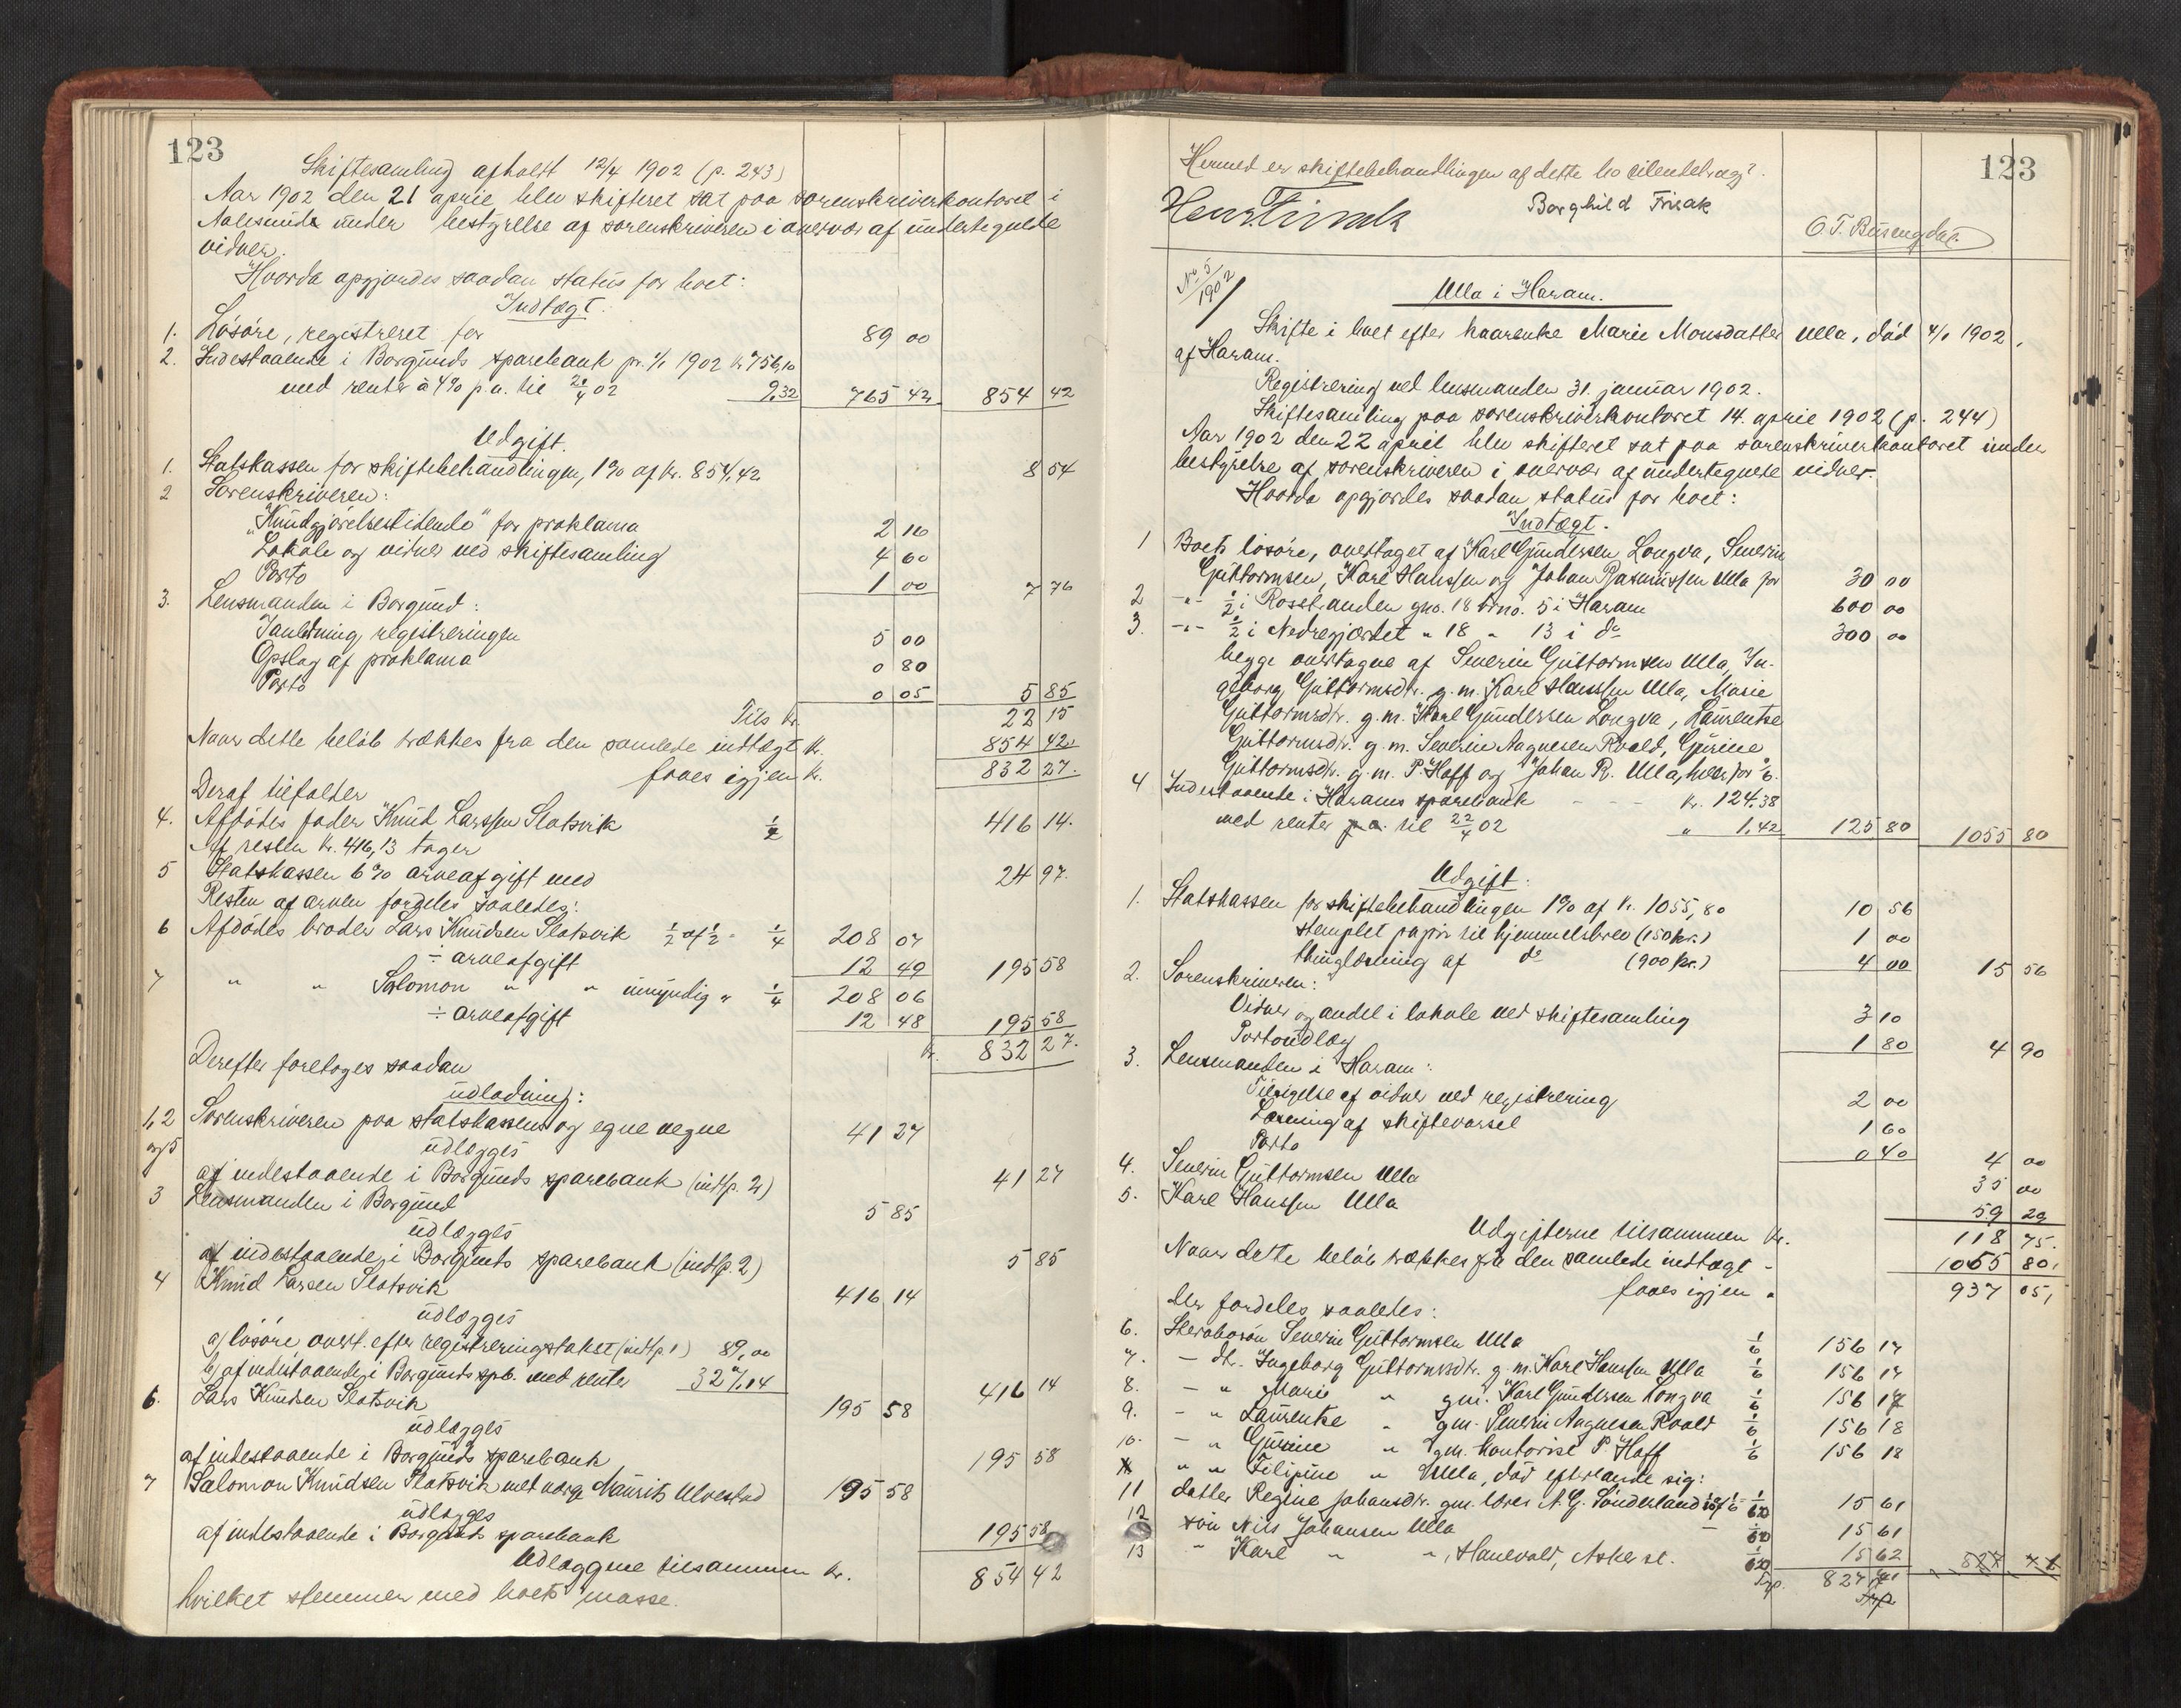 123
Skiftesamling afholdt 12/4 1902 (p. 243)
Aar 1902 den 21 april blev skifteret sat paa sorenskriverkontoret i
Aalesund under bestyrelse af sorenskriveren i overvær af undertegnede
vidner.
Hvorda opgjordes saadan status for boet:
Indtægt.
1. Løsøre, registreret for 89 00
2. Indestaaende i Borgunds sparebank pr. 1/1 1902 kr 756,10
med renter à 4% p.a. til 21/4 02 9,32 765 42 854 42
Udgift.
1. Statskassen for skiftebehandlingen, 1% af kr. 854,42 8 54
2 Sorenskriveren:
"Kundgjørelsestidende" for proklama 2 16
Lokale og vidner ved skiftesamling 4 60
Porto 1 00 7 76
3. Lensmanden i Borgund:
registreringen 5 00
Opslag af proklama 0 80
Porto 0 05 5 85
Tils kr. 22 15
Naar dette beløb trækkes fra den samlede indtægt kr. 854 42
faaes igjen kr. 832 27.
Deraf tilfalder
4. Afdødes fader Knud Larssen Slatsvik 1/2 416 14.
Af resten kr. 416,13 tager
5 Statskassen 6% arveafgift med 24 97.
Resten af arven fordeles saaledes:
6 Afdødes broder Lars Knudsen Slatsvik 1/2 af 1/2 = 1/4 208 07
÷ arveafgift 12 49 195 58
7 " " Salomon " " umyndig " 1/4 208 06
÷ arveafgift 12 48 195 58
kr. 832 27.
Derefter foretoges saadan
udlodning:
1, 2 Sorenskriveren paa statskassens og egne vegne 41 27
og 5 udlægges
af indestaaende i Borgunds sparebank (indtp. 2) 41 27
3 Lensmanden i Borgund 5 85
udlægges
af indestaaende i Borgunds sparebank (indtp. 2) 5 85
4 Knud Larsen Slatsvik 416 14
udlægges
a) løsøre overt. efter registreringstakst (indtp 1) 89,00
b) af indestaaende i Borgunds spb. med renter 327,14 416 14
6. Lars Knudsen Slatsvik 195 58
udlægges
af indestaaende i Borgunds sparebank 195 58
7 Salomon Knudsen Slatsvik med værge Maurits Ulvestad 195 58
udlægges
af indestaaende i Borgunds sparebank 195 58
Udlæggene tilsammen kr. 854 42
hvilket stemmer med boets masse.
Hermed er skiftebehandlingen af dette bo tilendebragt.
123
Borghild Frisak
O. T. Busengdal
No 5/1902
Ulla i Haram.
Skifte i boet efter kaarenke Marie Monsdatter Ulla, død 4/1 1902,
af Haram.
Registrering ved lensmanden 31. januar 1902.
Skiftesamling paa sorenskriverkontoret 14. april 1902 (p. 244)
Aar 1902 den 22 april blev skifteret sat paa sorenskriverkontoret under
bestyrelse af sorenskriveren i overvær af undertegnede vidner.
Hvorda opgjordes saadan status for boet:
Indtægt.
1 Boets løsøre, overtaget af Karl Gundersen Longva, Severin
Guttormsen, Karl Hanssen og Johan Rasmussen Ulla for 30 00
2 -"- 1/2 i Rosstranden gno. 18 brno. 5 i Haram 600 00
3. -"- 1/2 i Nedregjærdet " 18 " 13 i do 300 00
begge overtagne af Severin Guttormsen Ulla, In-
geborg Guttormsdtr. g.m. Karl Hanssen Ulla, Marie
Guttormsdtr. g.m. Karl Gundersen Longva, Laurentse
Guttormsdtr. g.m. Severin Aagnesen Roald, Gurine
Guttormsdtr. g.m. P. Hoff og Johan R. Ulla, hver for 1/6.
4 Indestaaende i Harams sparebank - - - kr. 124,38
med renter p.a. til 22/4 02 " 1,42 125 80 1055 80
Udgift.
1. Statskassen for skiftebehandlingen 1% af kr. 1055,80 10 56
stemplet papir til hjemmelsbrev (150 kr.) 1 00
thinglæsning af do (900 kr.) 4 00 15 56
2. Sorenskriveren:
Vidner og andel i lokale ved skiftesamling 3 10
Portoudlæg 1 80 4 90
3. Lensmanden i Haram:
Tilsigelse af vidner ved registrering 2 00
Læsning af skiftevarsel 1 60
Porto 0 40 4 00
4. Severin Guttormsen Ulla 35 00
5. Karl Hanssen Ulla 59 29
Udgifterne tilsammen kr. 118 75.
Naar dette beløb trækkes fra den samlede indtægt - 1055 80,
faaes igjen " 937 05,
der fordeles saaledes:
6. Stervbosøn Severin Guttormsen Ulla 1/6 156 17
7. - dtr. Ingeborg Guttormsdtr. g.m. Karl Hanssen Ulla 1/6 156 17
8. - " Marie " gm. Karl Gundersen Longva 1/6 156 17
9. - " Laurentse " gm. Severin Aagnesen Roald 1/6 156 18
10. - " Gurine " gm. kontorist P Hoff 1/6 156 18
" " Filipine " Ulla, død efterlatende sig:
11 datter Regine Johansdtr. gm. lærer A. G. Sønderland 1/10 af 1/6 = 1/60 15 61
12 søn Nils Johansen Ulla - 1/60 15 61
13 " Karl " ", Hanevold, Asker st. 1/60 15 62
Trsp. 827 71